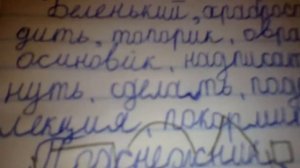 беленький, храброс
дить, топорик, овра
осиновик, надписат
нуть, сделать, под
лекция, покормил
Подснежник